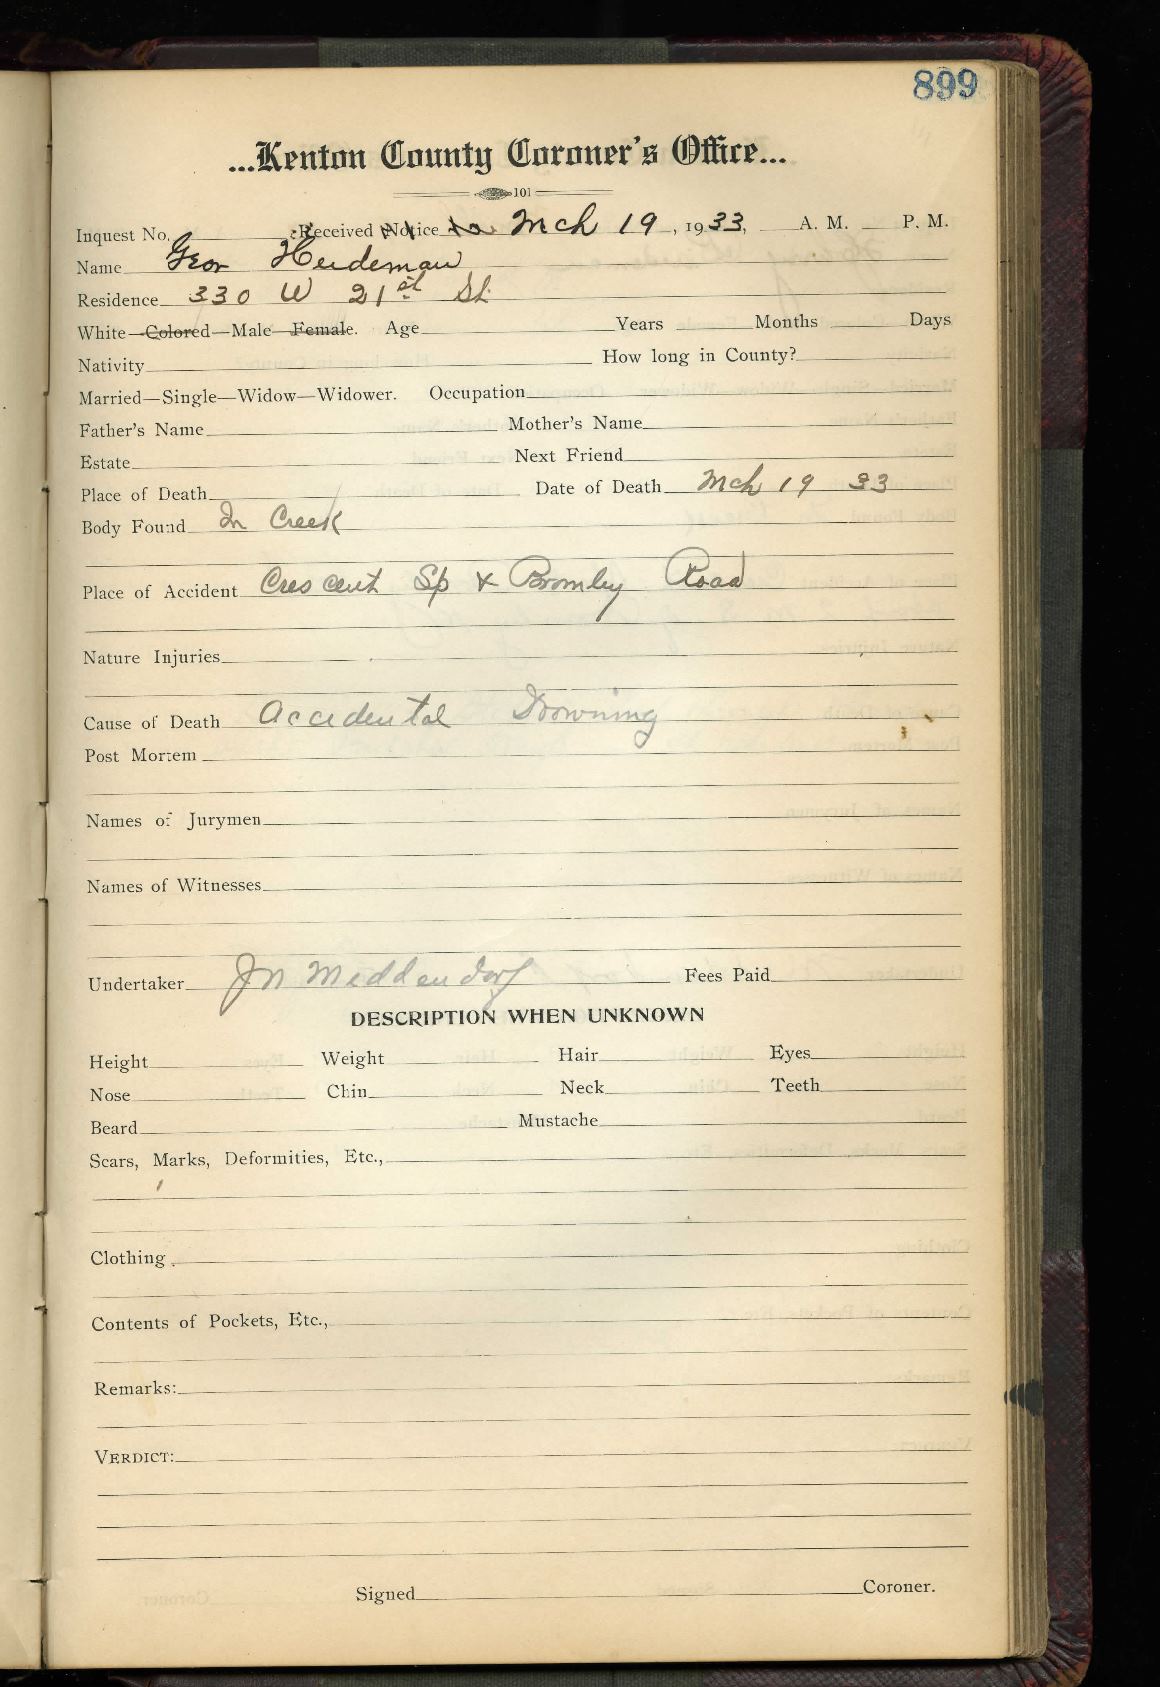 899
...Kenton County Coroner's Office...
101
Inquest No. Received Notice Mch 19, 1933, A. M. P. M.
Name Geor Heideman
Residence 330 W 21st St
White—Colored—Male—Female. Age Years Months Days
Nativity How long in County?
Married—Single—Widow—Widower. Occupation
Father's Name Mother's Name
Estate Next Friend
Place of Death Date of Death Mch 19 33
Body Found In Creek
Place of Accident Crescent Sp & Bromley Road
Nature Injuries
Cause of Death Accidental Drowning
Post Mortem
Names of Jurymen
Names of Witnesses
Undertaker JN Meddendorf Fees Paid
DESCRIPTION WHEN UNKNOWN
Height Weight Hair Eyes
Nose Chin Neck Teeth
Beard Mustache
Scars, Marks, Deformities, Etc.,
Clothing
Contents of Pockets, Etc.,
Remarks:
VERDICT:
Signed Coroner.